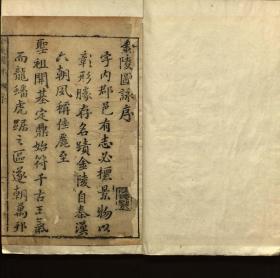 金陵圖詠序
宇內郡邑有志必標景物以
彰形勝存名蹟金陵自秦漢
六朝夙稱佳麗至
聖祖開基定鼎始符千古王氣
而龍蟠虎踞之區遂朝萬邦